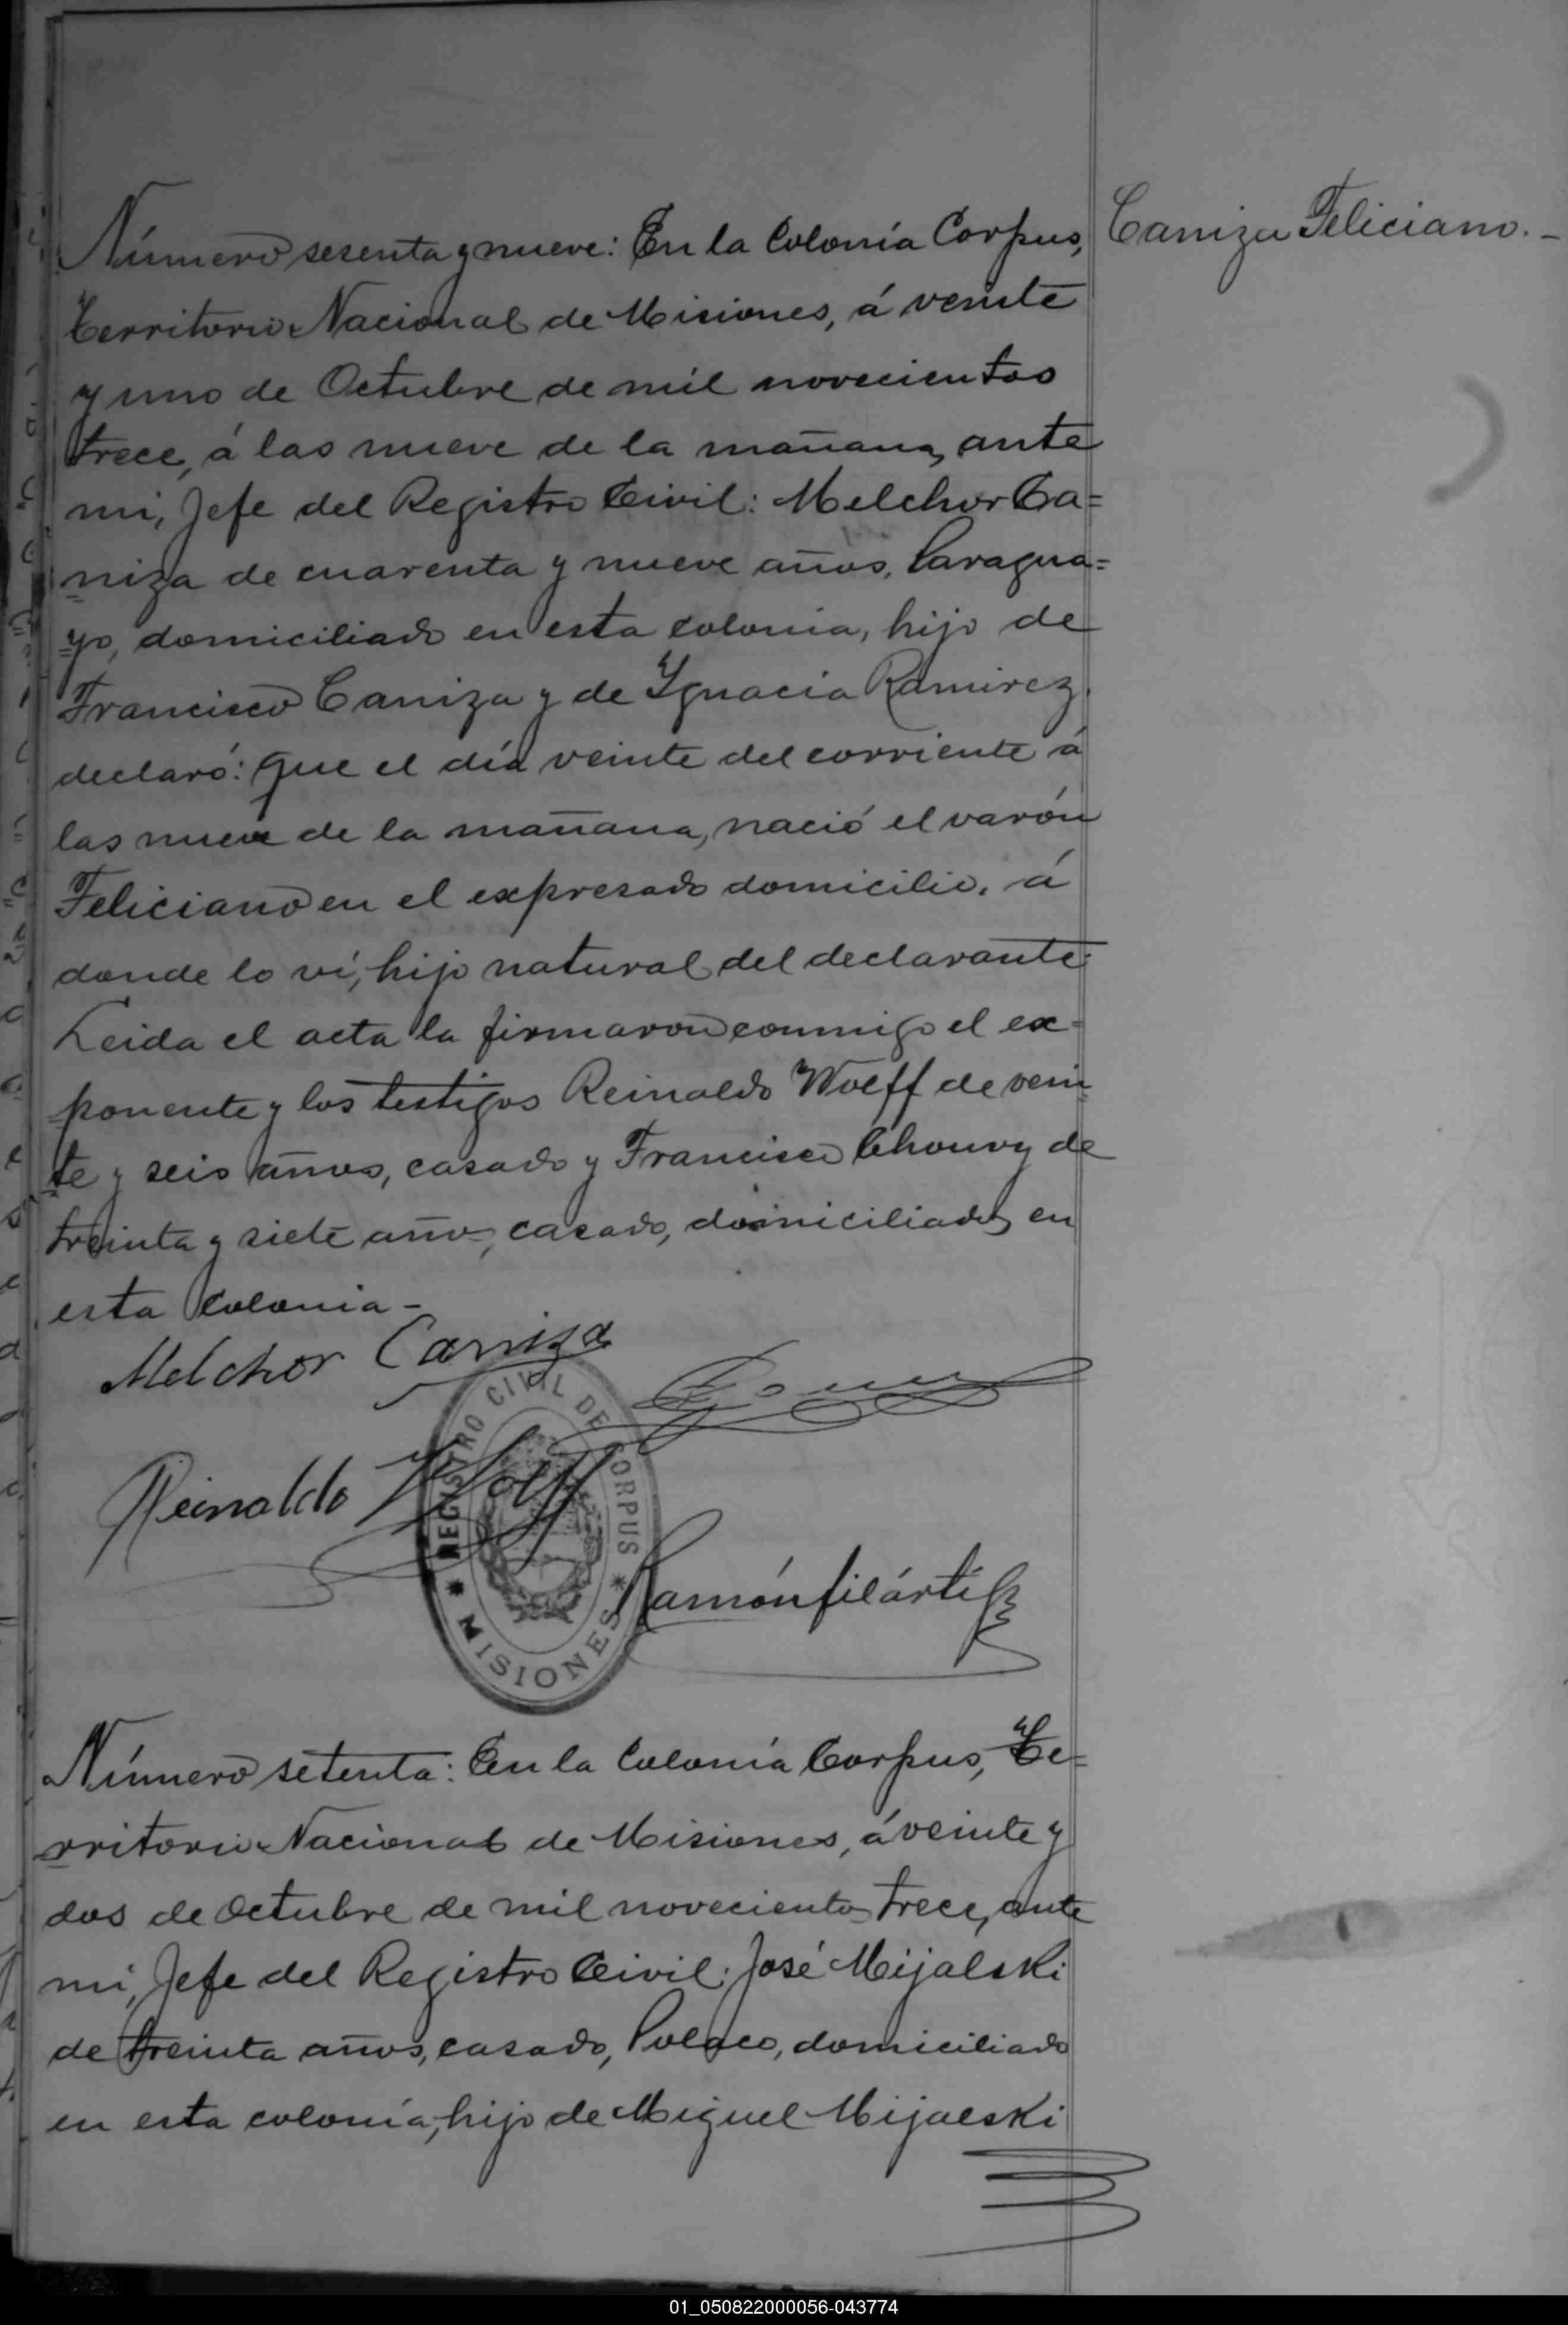 Número sesenta y nueve: En la Colonia Corpus,
Caniza Feliciano. -
Territorio Nacional de Misiones, á veinte
y uno de Octubre de mil novecientos
trece, á las nueve de la mañana, ante
mi, Jefe del Registro Civil: Melchor Ca=
niza de cuarenta y nueve años, Paragua=
yo, domiciliado en esta colonia, hijo de
Francisco Caniza y de Ygnacia Ramirez,
declaró: que el día veinte del corriente á
las nueve de la mañana, nació el varón
Feliciano en el expresado domicilio, á
donde lo ví, hijo natural del declarante.
Leida el acta la firmaron conmigo el ex=
ponente y los testigos Reinaldo Wolff de vein
te y seis años, casado y Francisco Chouvy de
treinta y siete años, casado, domiciliados en
esta Colonia -
Melchor Caniza
Reinaldo Wolff
REGISTRO CIVIL DE CORPUS
* MISIONES *
Ramón filártiga
Número setenta: En la Colonia Corpus, Te=
rritorio Nacional de Misiones, á veinte y
dos de Octubre de mil novecientos trece, ante
mi, Jefe del Registro Civil: José Mijalski
de treinta años, casado, Polaco, domiciliado
en esta colonia, hijo de Miguel Mijalski
01_050822000056-043774